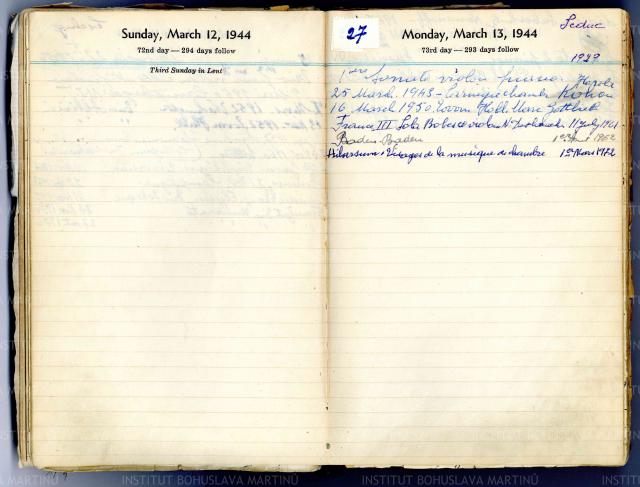 Sunday, March 12, 1944
72nd day — 294 days follow
Third Sunday in Lent
27
Monday, March 13, 1944
73rd day — 293 days follow
Leduc
1929
1ère Sonate violon piano
25 March 1943 - Carnegie chamber
16 March 1950 Town Hall
France III Lola Bobesco violon 11 July 1961
Baden-Baden 1962
Hilversum: Visages de la musique de chambre 1er Mars 1972
INSTITUT BOHUSLAVA MARTINŮ